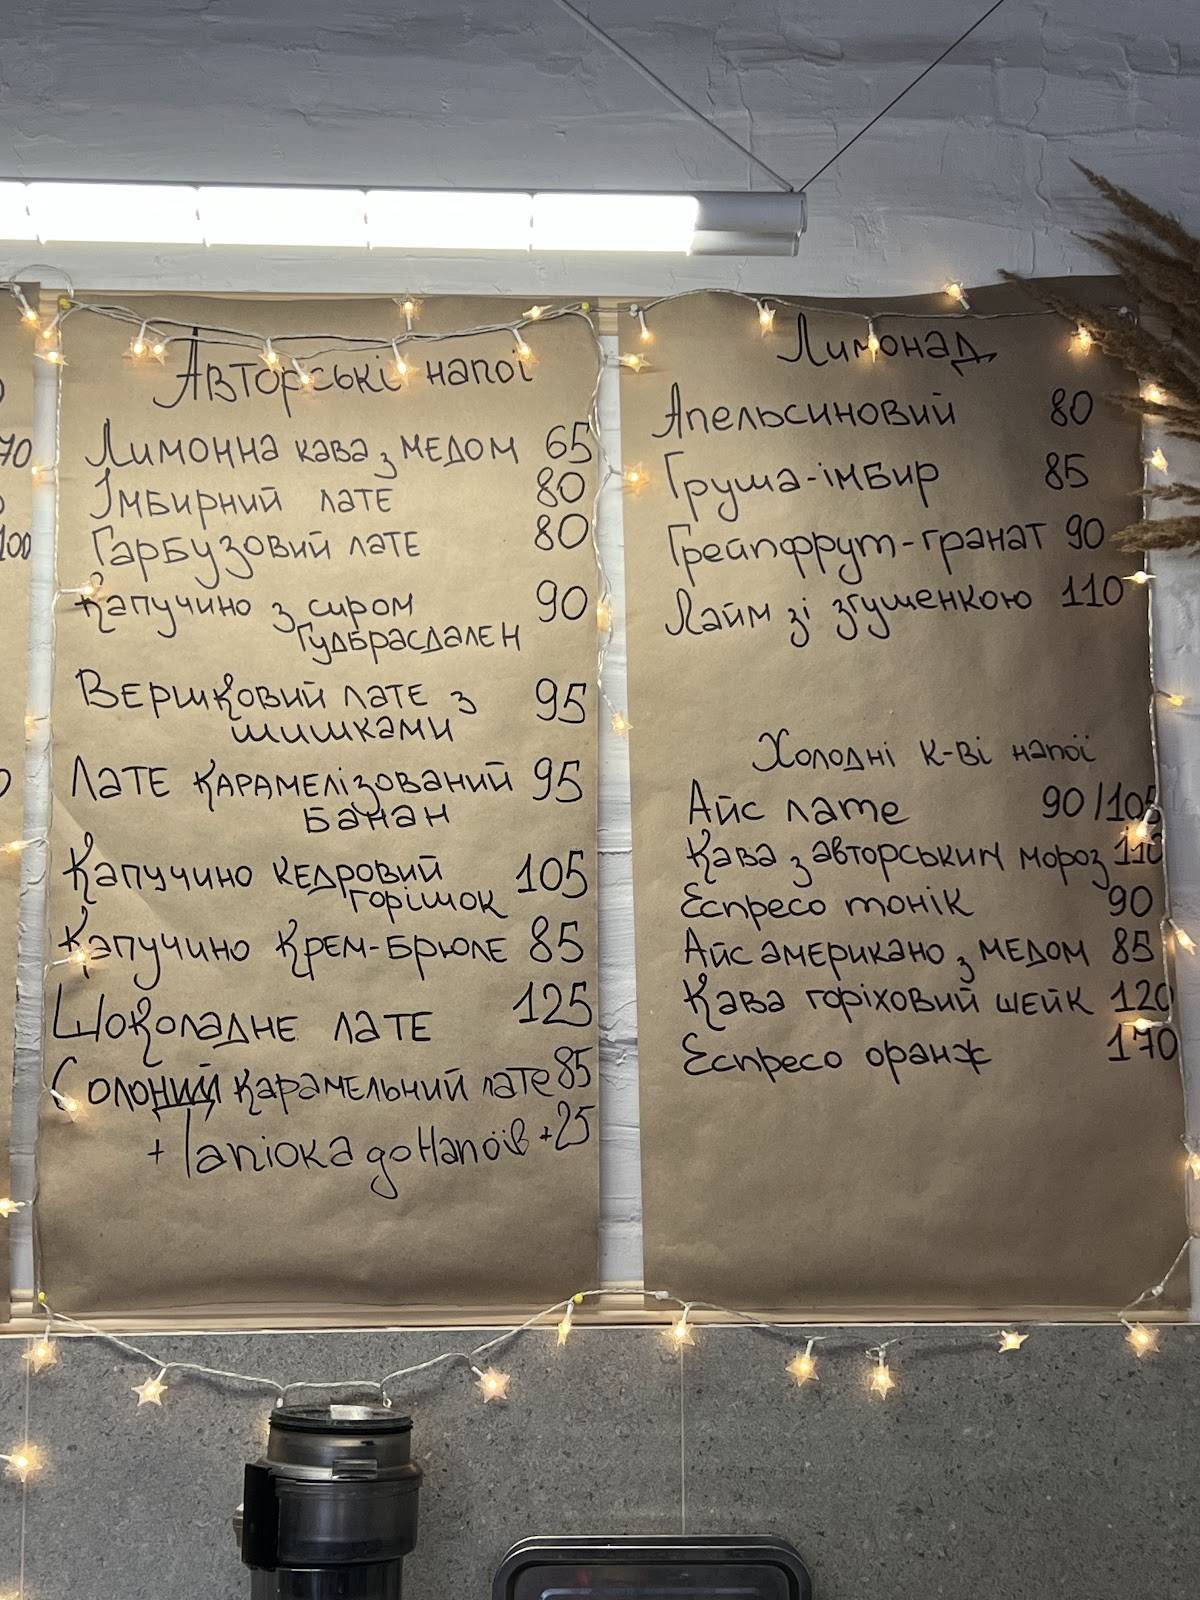 70
100
Авторські напої
Лимонна кава з медом 65
Імбирний лате 80
Гарбузовий лате 80
Капучино з сиром 90
Гудбрасдален
Вершковий лате з 95
шишками
Лате карамелізований 95
банан
Капучино кедровий 105
горішок
Капучино Крем-брюле 85
Шоколадне лате 125
Солоний карамельний лате 85
+ Тапіока до напоїв +25
Лимонад
Апельсиновий 80
Груша-імбир 85
Грейпфрут-гранат 90
Лайм зі згущенкою 110
Холодні к-ві напої
Айс лате 90/105
Кава з авторським мороз 110
Еспресо тонік 90
Айс американо з медом 85
Кава горіховий шейк 120
Еспресо оранж 170